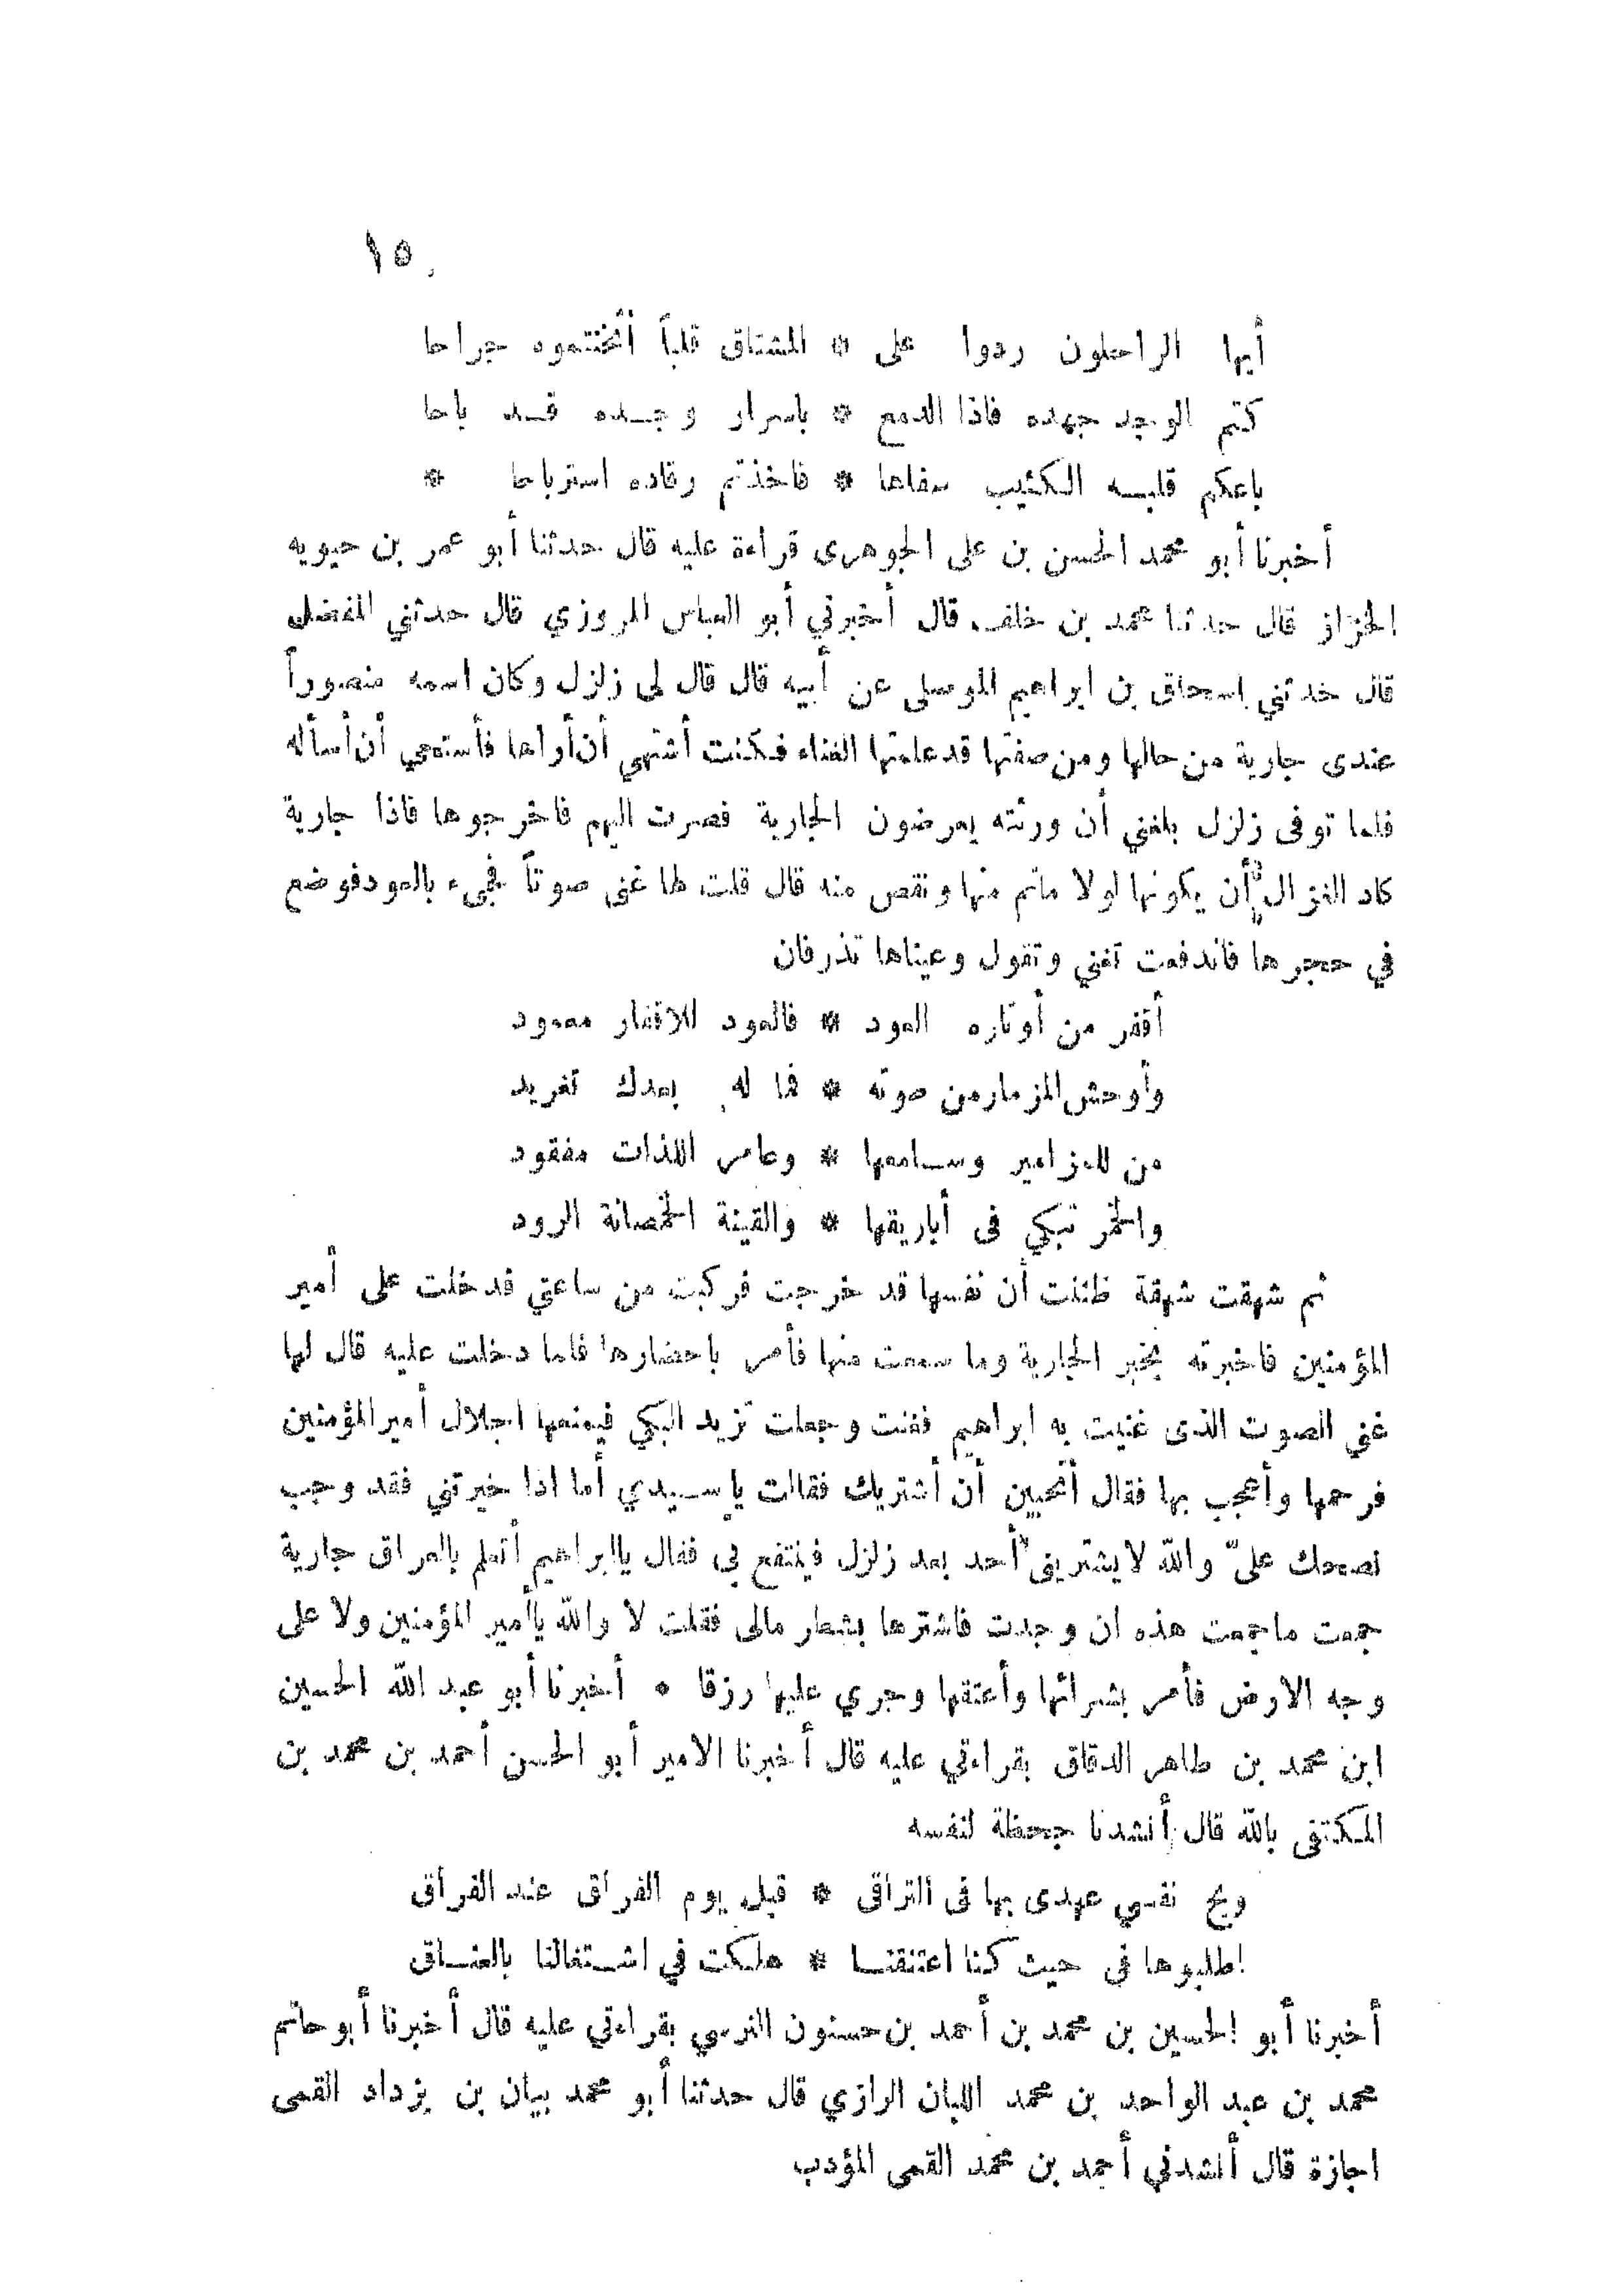 ١٥
أيها الراحلون ردوا على * المشتاق قلباً أثخنتموه جراحا
كتم الوجد جهده فاذا الدمع * باسرار وجـده قـد باحا
باعكم قلبـه الكئيب سفاها * فاخذتم رقاده استرباحا *
أخبرنا أبو محمد الحسن بن على الجوهرى قراءة عليه قال حدثنا أبو عمر بن حيويه
الخزاز قال حدثنا محمد بن خلف قال أخبرني أبو العباس المروزي قال حدثني المفضل
قال حدثني اسحاق بن ابراهيم الموصلى عن أبيه قال قال لى زلزل وكان اسمه منصوراً
عندى جارية من حالها ومن صفتها قد علمتها الغناء فكنت أشتهي أن أراها فأستحي أن أسأله
فلما توفى زلزل بلغني أن ورثته يعرضون الجارية فصرت اليهم فاخرجوها فاذا جارية
كاد الغزال أن يكونها لولا ماتم منها ونقص منه قال قلت لها غنى صوتاً فجىء بالعود فوضع
في حجرها فاندفعت تغني وتقول وعيناها تذرفان
أقفر من أوتاره العود * فالعود للاقفار معمود
وأوحش المزمار من صوته * فما له بعدك تغريد
من للمزامير وسـامعها * وعامر اللذات مفقود
والخمر تبكي فى أباريقها * والقينة الخمصانة الرود
ثم شهقت شهقة ظننت أن نفسها قد خرجت فركبت من ساعتي فدخلت على أمير
المؤمنين فاخبرته بخبر الجارية وما سمعت منها فأمر باحضارها فلما دخلت عليه قال لها
غني الصوت الذى غنيت به ابراهيم فغنت وجعلت تزيد البكي فيمنعها اجلال أمير المؤمنين
فرحمها وأعجب بها فقال أتحبين أن أشتريك فقالت ياسـيدي أما اذا خيرتني فقد وجب
نصحك علىّ والله لايشترينى أحد بعد زلزل فينتفع بى فقال ياابراهيم أتعلم بالعراق جارية
جمعت ماجمعت هذه ان وجدت فاشترها بشطر مالى فقلت لا والله ياأمير المؤمنين ولا على
وجه الارض فأمر بشرائها وأعتقها وجري عليها رزقا * أخبرنا أبو عبد الله الحسين
ابن محمد بن طاهر الدقاق بقراءتي عليه قال أخبرنا الامير أبو الحسن أحمد بن محمد بن
المكتفى بالله قال أنشدنا جحظة لنفسه
ويح نفسي عهدى بها فى التراقى * قبل يوم الفراق عند الفراق
اطلبوها فى حيث كنا اعتنقنـا * هلكت في اشـتغالنا بالعنـاق
أخبرنا أبو الحسين بن محمد بن أحمد بن حسنون النرسي بقراءتي عليه قال أخبرنا أبو حاتم
محمد بن عبد الواحد بن محمد اللبان الرازي قال حدثنا أبو محمد بيان بن يزداد القمى
اجازة قال أنشدني أحمد بن محمد القمى المؤدب